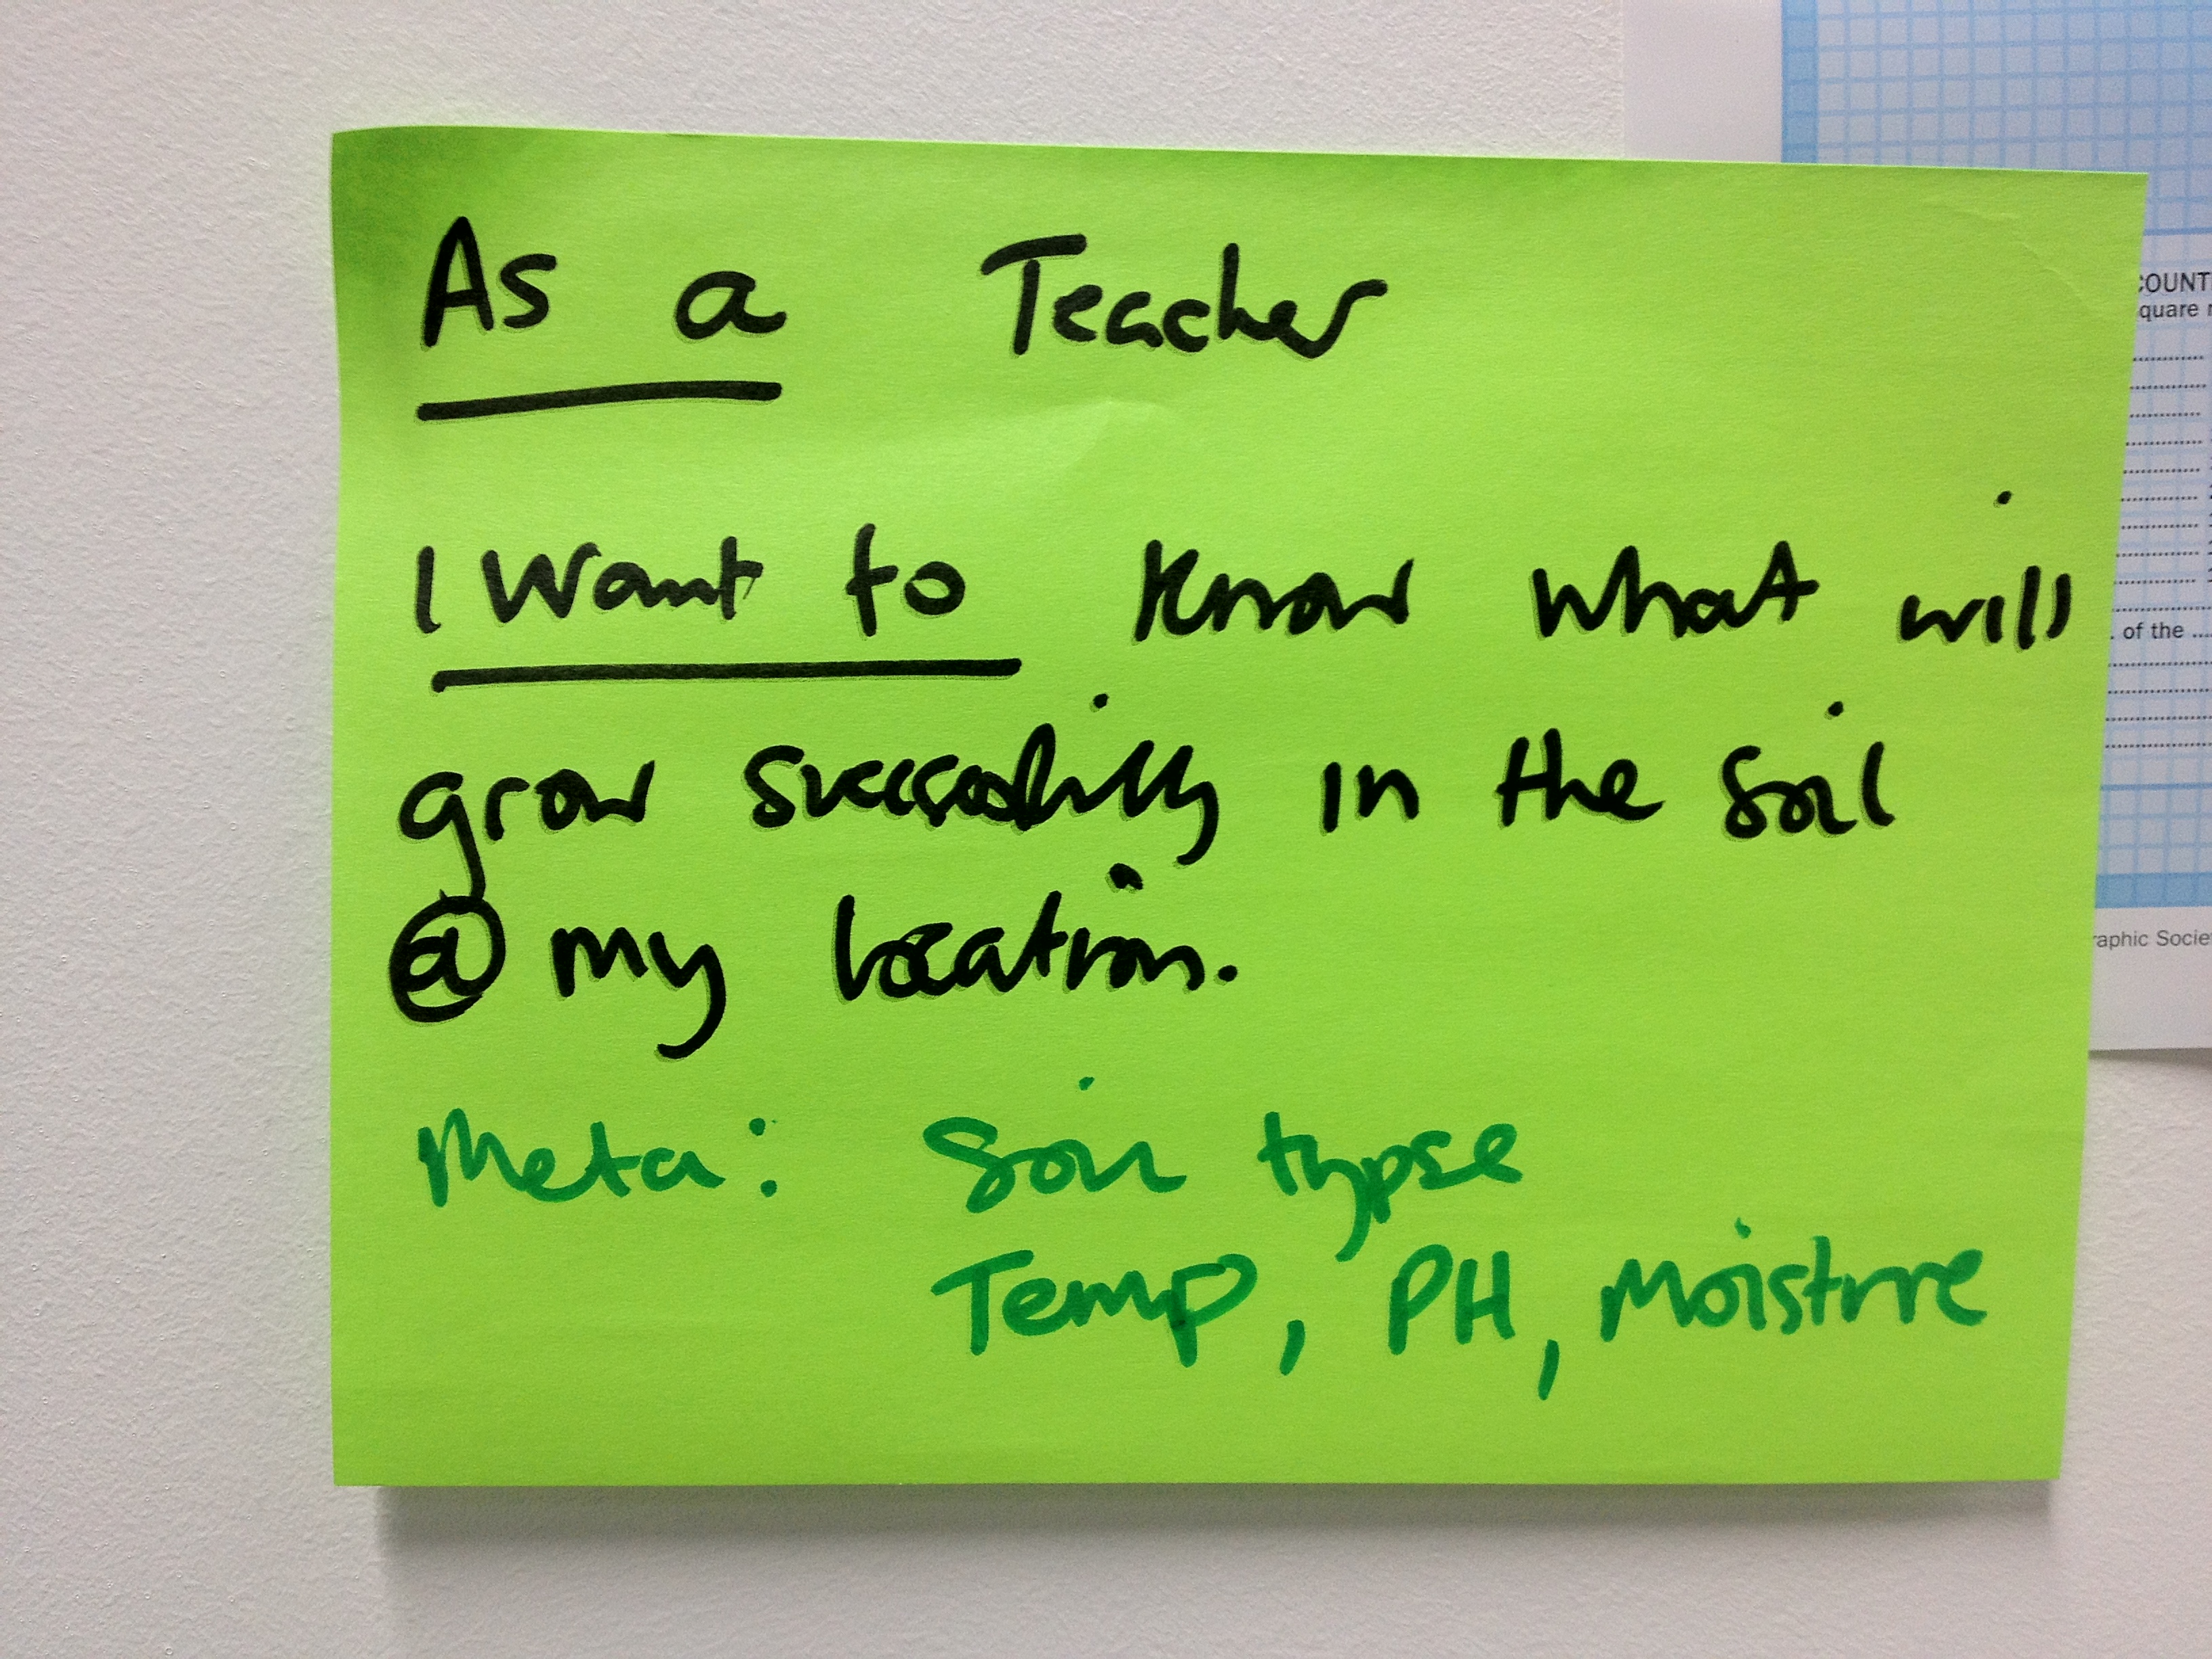 As a Teacher
I want to know what will
grow successfully in the soil
@ my location.
Meta: Soil typse
Temp, PH, Moisture
COUNT
quare
of the
raphic Socie